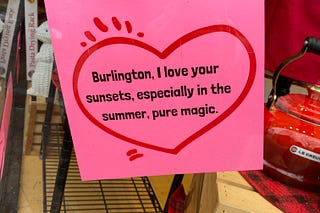 Burlington, I love your
sunsets, especially in the
summer, pure magic.
LE CREUSET